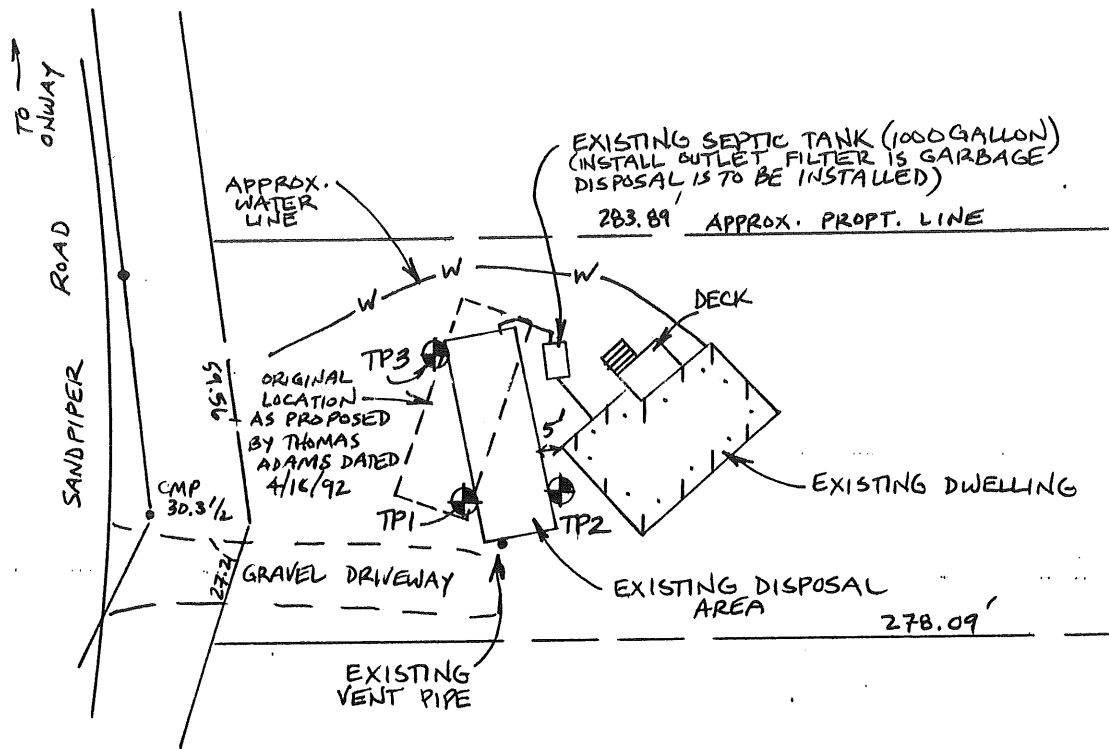 TO →
ONWAY
SANDPIPER ROAD
APPROX.
WATER
LINE
EXISTING SEPTIC TANK (1000 GALLON)
(INSTALL OUTLET FILTER IS GARBAGE
DISPOSAL IS TO BE INSTALLED)
283.89' APPROX. PROPT. LINE
W
W
W
DECK
TP3
ORIGINAL
LOCATION
AS PROPOSED
BY THOMAS
ADAMS DATED
4/16/92
5'
CMP
30.3 1/2
TP1
TP2
EXISTING DWELLING
27.21'
GRAVEL DRIVEWAY
EXISTING DISPOSAL
AREA
278.09'
EXISTING
VENT PIPE